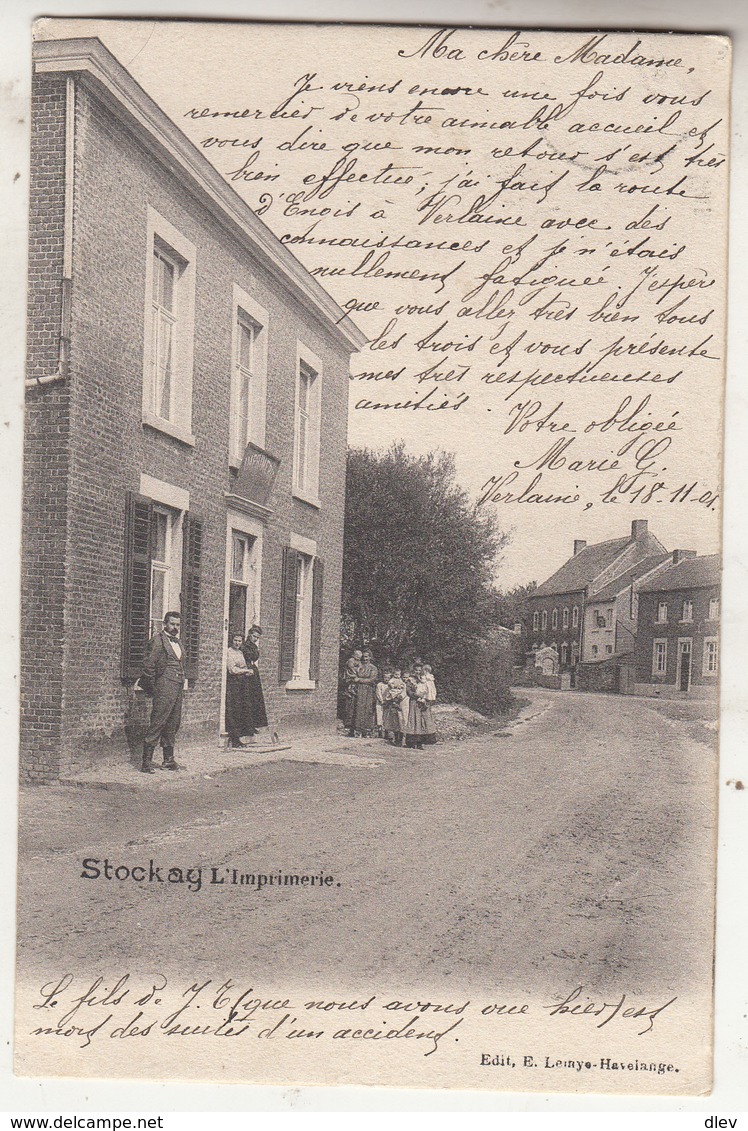 Ma chère Madame,
Je viens encore une fois vous
remercier de votre aimable accueil et
vous dire que mon retour s'est très
bien effectué; j'ai fait la route
d'Engis à Verlaine avec des
connaissances et je n'étais
nullement fatiguée. J'espère
que vous allez très bien tous
les trois et vous présente
mes très respectueuses
amitiés.
Votre obligée
Marie G.
Verlaine, le 18-11-01.
Stockay L'Imprimerie.
Le fils de J. T. (que nous avons vue hier) est
mort des suites d'un accident.
Edit, E. Lemye-Havelange.
dlev
delcampe.net